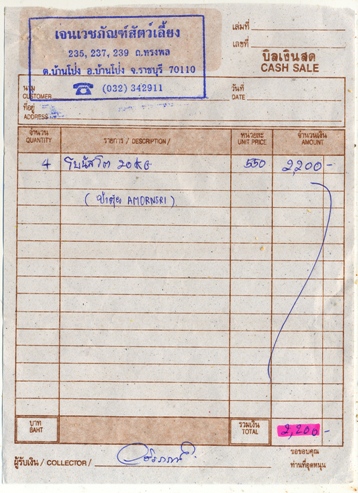 เจนเวชภัณฑ์สัตว์เลี้ยง
235, 237, 239 ถ.ทรงพล
ต.บ้านโป่ง อ.บ้านโป่ง จ.ราชบุรี 70110
☎ (032) 342911
เล่มที่
เลขที่
บิลเงินสด
CASH SALE
นาม
CUSTOMER
วันที่
DATE
ที่อยู่
ADDRESS
จำนวน รายการ / DESCRIPTION / หน่วยละ จำนวนเงิน
QUANTITY UNIT PRICE AMOUNT
4 โบนัสโต 20 KG 550 2,200-
( ป้าตุ่ย AMORNSRI )
บาท รวมเงิน
BAHT TOTAL 2,200-
ผู้รับเงิน / COLLECTOR /
ขอขอบคุณ
ท่านที่อุดหนุน